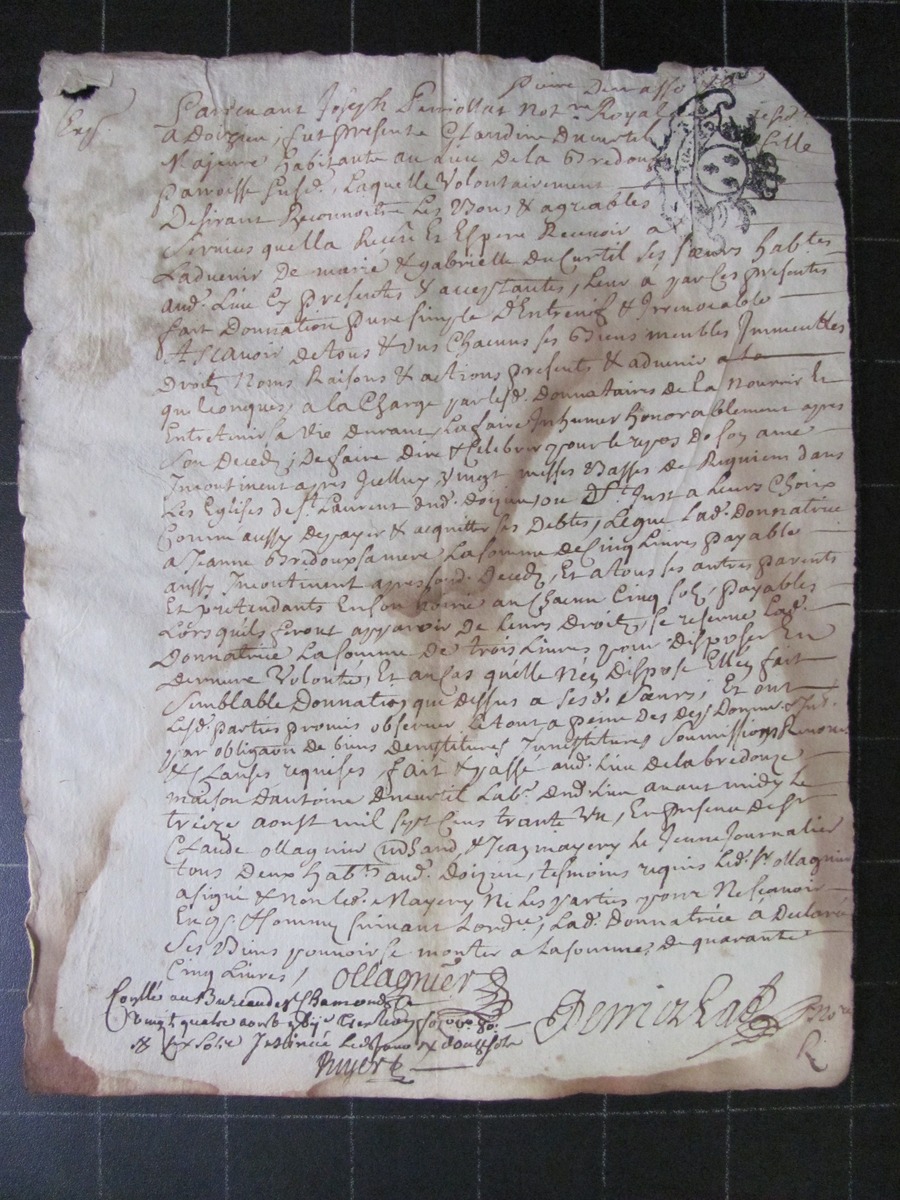 Exp.
Pardevant Joseph Perriollat Not.re Royal
a Doizieu, fut presente Claudine Ducurtil fille
Majeure habitante au lieu de la Bredouze
parroisse susd. Laquelle Volontairement
Desirant Reconnoitre Les Bons & agreables
Services quella Receu Et Espere Recevoir a
Ladvenir de marie & gabrielle Ducurtil ses sœurs habtes
aud. Lieu Ey presentes & acceptantes, Leur a par Ces presentes
fait Donnation pure simple D'Entrevif & Irrevocable
Ascavoir de tous & uns Chacuns ses Biens meubles Immeubles
Droitz Noms Raisons & actions presents & advenir
quelconques, a la Charge par lesd. Donnataires de la Nourrir Et
Entretenir sa Vie Durant, La faire Inhumer honorablement apres
Son Decedz, De faire dire & Celebrer pour le repos de son ame
Incontinent apres Icelluy Vingt messes Basses de Requiem dans
Les Eglises de St Laurent dud. doizieu, ou de St Just a Leurs Choix
Comme aussy de payer & acquitter ses Debtes, Legue Lad. Donnatrice
a Jeanne Bredoux sa mere La somme de Cinq Livres payable
aussy Incontinent apres sond. Decedz, Et a tous ses autres parents
Et pretendants En son hoirie au Chacun Cinq solz, payables
Lorsquils feront apparoir de Leurs Droitz, se reserve Lad.
Donnatrice La somme de trois Livres pour Disposer En
derniere Volonté, Et au Cas qu'elle N'ey Dispose Elle Ey fait
Semblable Donnation que dessus a sesd. sœurs; Et ont
Lesd. parties promis observer Le tout a peine de
par obligaon de biens soummissions Renon.
& Clauses requises fait & passé aud. Lieu de la bredouze
maison d'antoine Ducurtil Labr. dud. Lieu avant midy Le
treize aoust mil sept Cens trante Un, En presence de sr
Claude ollagnier & Jean mayery le Jeune Journalier
tous Deux habts aud. Doizieu, tesmoins requis Led. sr ollagnier
a signé & non led. Mayery Ni Les parties pour Ne scavoir
Enqs. & somme suivant Lordce, Lad. Donnatrice a Declaré
Ses Biens pouvoir se monter a la somme de quarante
Cinq Livres /
ollagnier
Perriollat Nore
R.
Conllé au Bureau de St Chamond Le
Vingt quatre aoust
& six solz